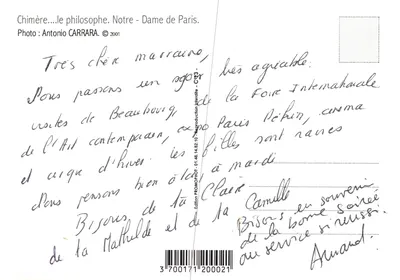 Chimère....le philosophe. Notre - Dame de Paris.
Photo : Antonio CARRARA. © 2001
Très chère marraine,
Nous passons un séjour très agréable.
visites de Beaubourg, de la Foire Internationale
de l'Art contemporain, expo Paris Pékin, cinéma
et cirque d'hiver. les filles sont ravies
Nous pensons bien à toi, à mardi
Bisous de la Claire
de la Mathilde et de la Camille
Bisous en souvenir
de la bonne soirée
au service si réussi.
Arnaud.
3 700171 200021